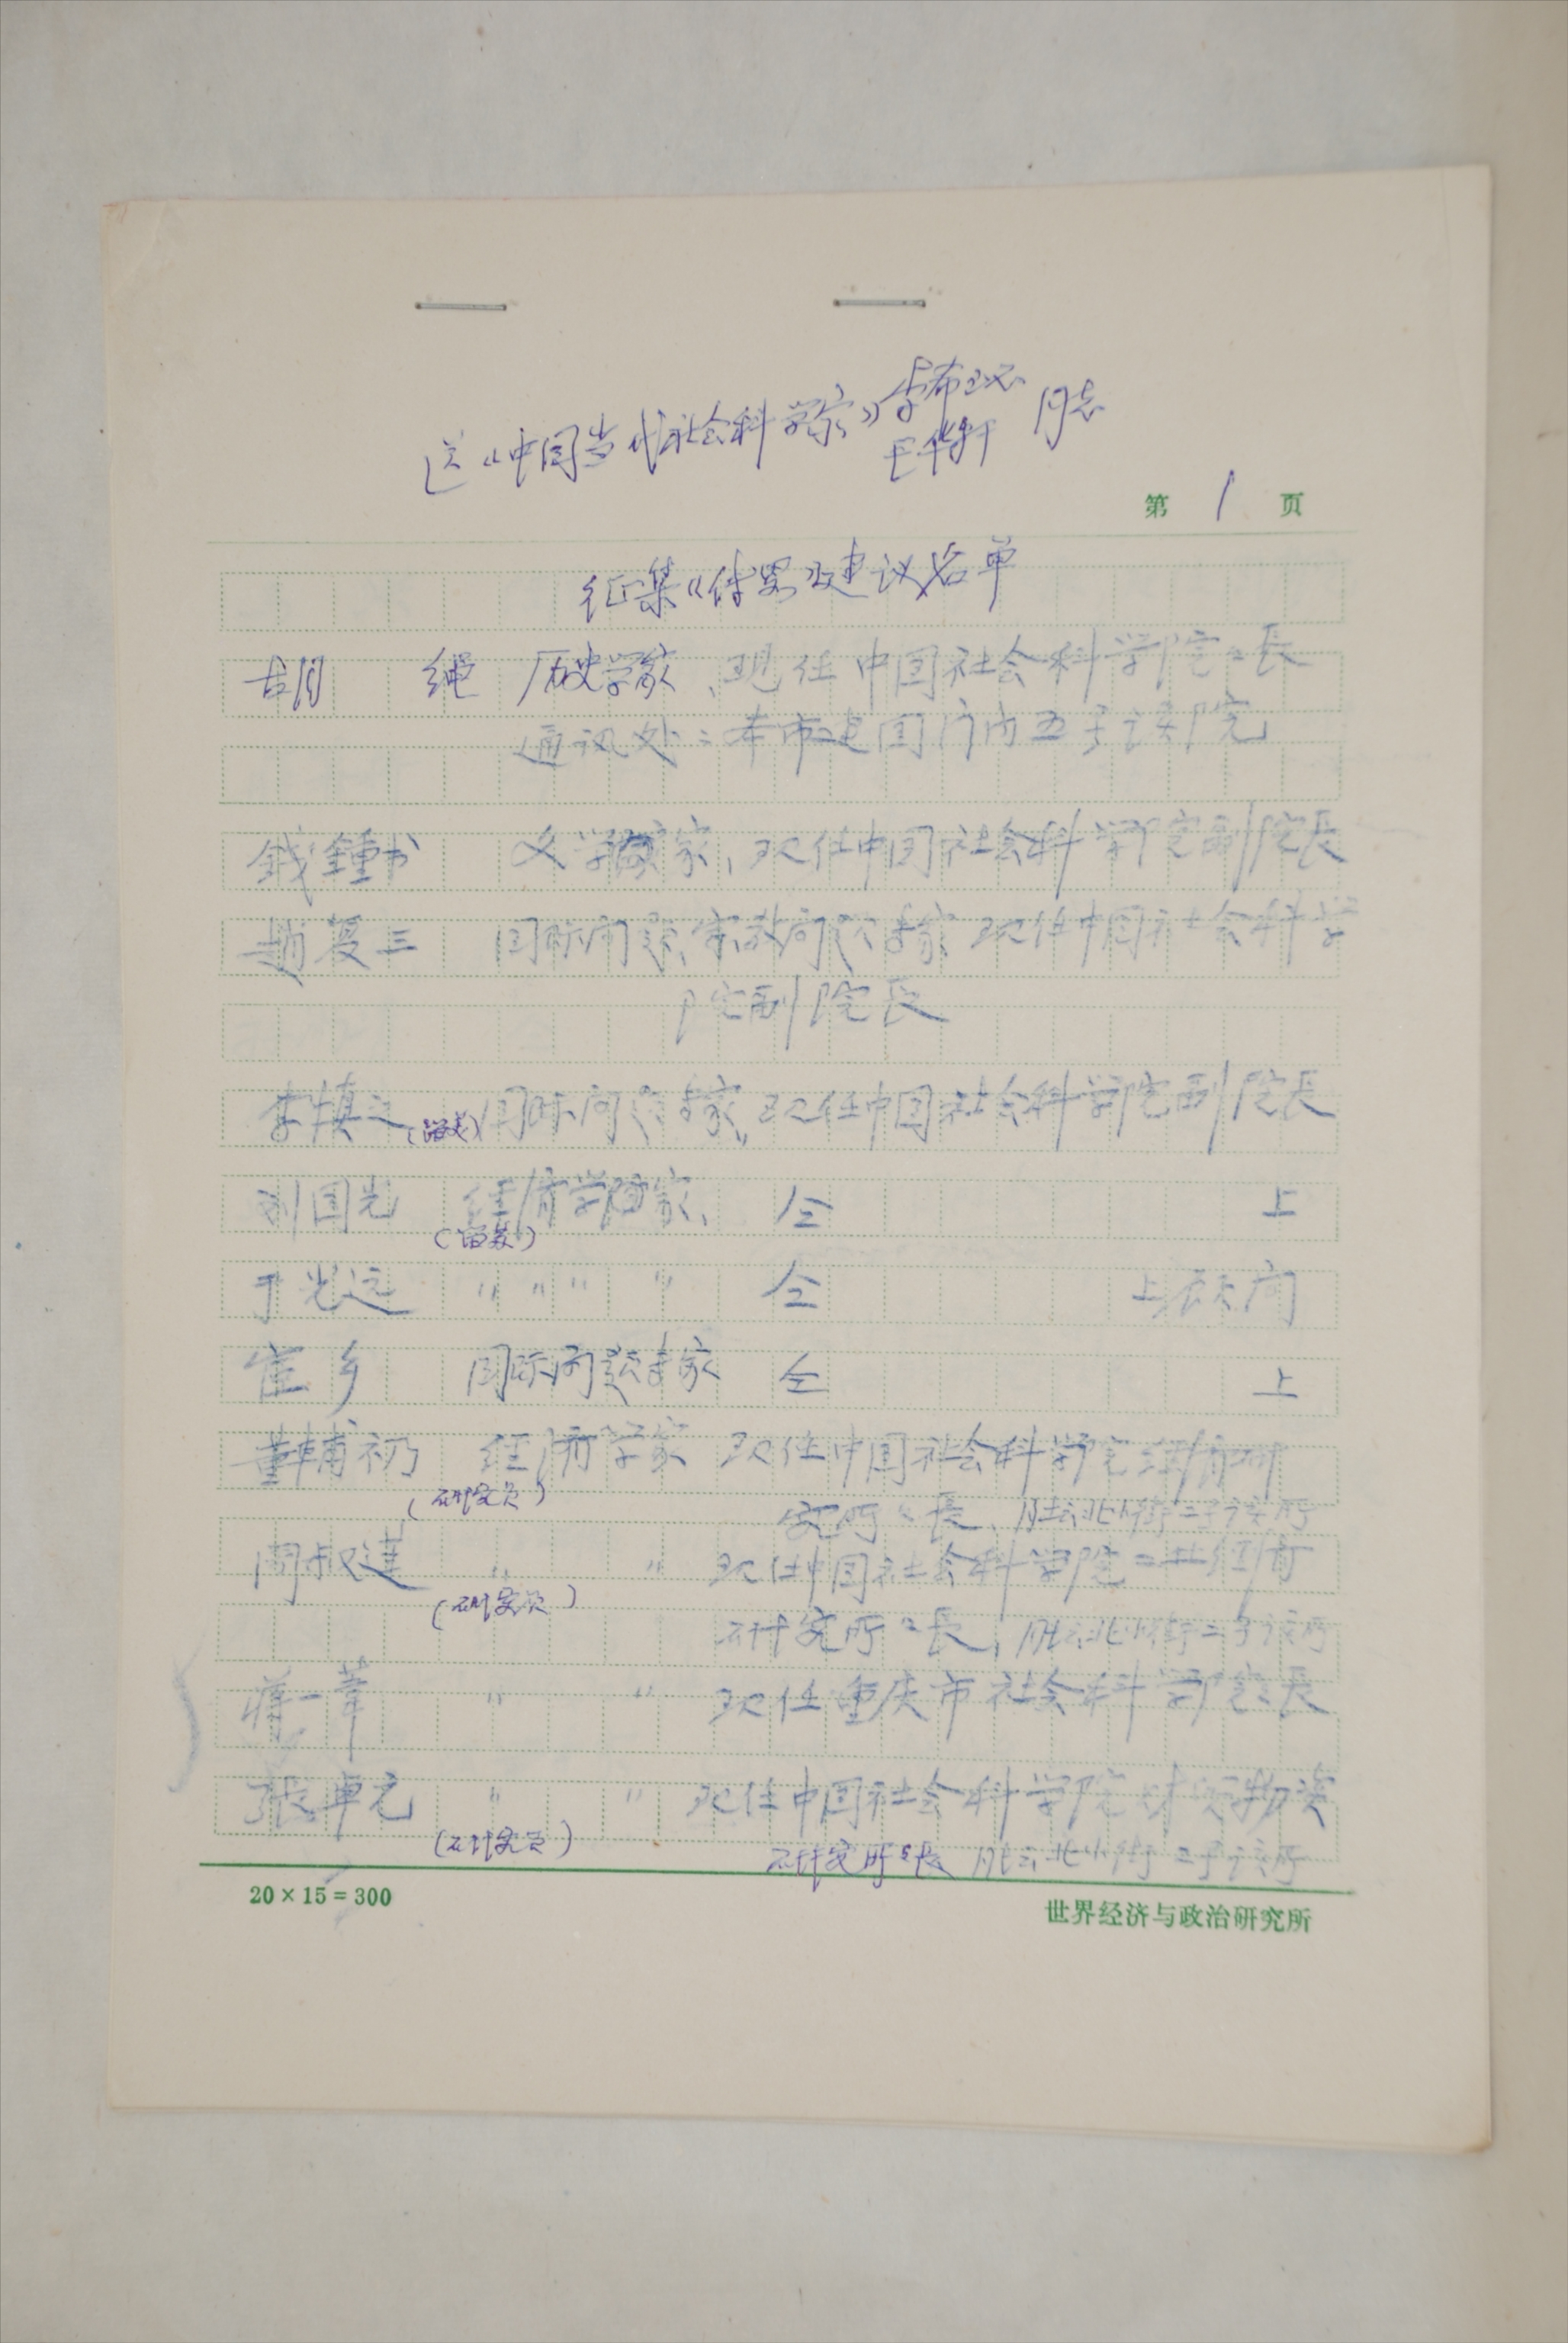 送《中国当代社会科学家》李希泌 同志
王华轩
第 1 页
征集《传略》建议名单
胡 绳 历史学家、现任中国社会科学院〃長
通讯处：本市建国门内五号该院
錢鍾书 文学家，现任中国社会科学院副院長
趙复三 国际问题、宗教问题专家 现任中国社会科学
院副院長
李慎之 国际问题专家，现任中国社会科学院副院長
刘国光 经济学家、 仝 上
(留苏)
于光远 〃 〃 〃 〃 仝 上 顾问
宦乡 国际问题专家 仝 上
董辅礽 经济学家 现任中国社会科学院经济研
(研究员)
究所〃長、月坛北小街二号该所
周叔莲 〃 〃 现任中国社会科学院工业经济
(研究员)
研究所〃長，月坛北小街二号该所
蒋一苇 〃 〃 现任重庆市社会科学院〃長
張卓元 〃 〃 现任中国社会科学院财贸物资
(研究员)
研究所〃長 月坛北小街二号该所
20×15=300
世界经济与政治研究所